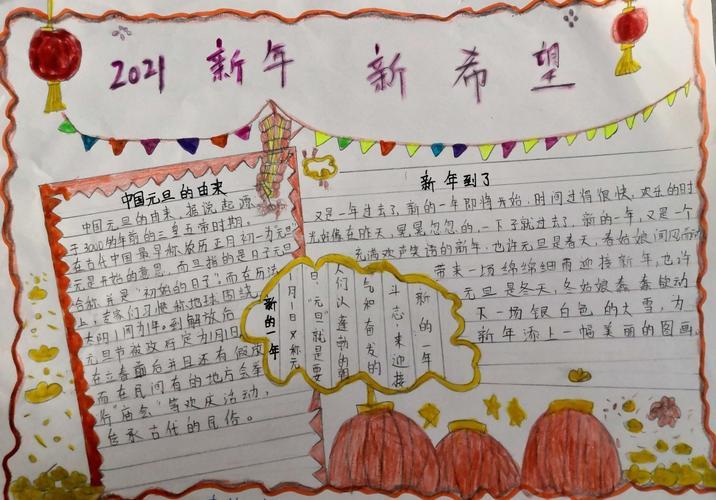 2021 新年 新希望
中国元旦的由来
中国元旦的由来,据说起源
于3000多年前的三皇五帝时期,
在古代中国最早称农历正月初一为元旦
元是开始的意思,而旦指的是日子元旦
合称并是"初始的日子"。而在历法
上,专家们习惯称地球围绕
太阳1周为1年。到解放后
元旦节被政府定为1月1日
在立春前后并且还有假放
而在民间有的地方会举
行"庙会"等欢庆活动,
传承古代的民俗。
新年到了
又是一年过去了,新的一年即将开始,时间过得很快,欢乐的时
光好像在昨天,匆匆忽忽的,一下子就过去了,新的一年,又是一个
充满欢声笑语的新年,也许元旦是春天,春姑娘
带来一场绵绵细雨迎接新年,也许
元旦是冬天,冬姑娘轰轰
下一场银白色的大雪,为
新年添上一幅美丽的图画。
新的一年
月1日又称元
日,"元旦"就是要
人们以蓬勃的朝
气和奋发的
斗志,来迎接
新的一年